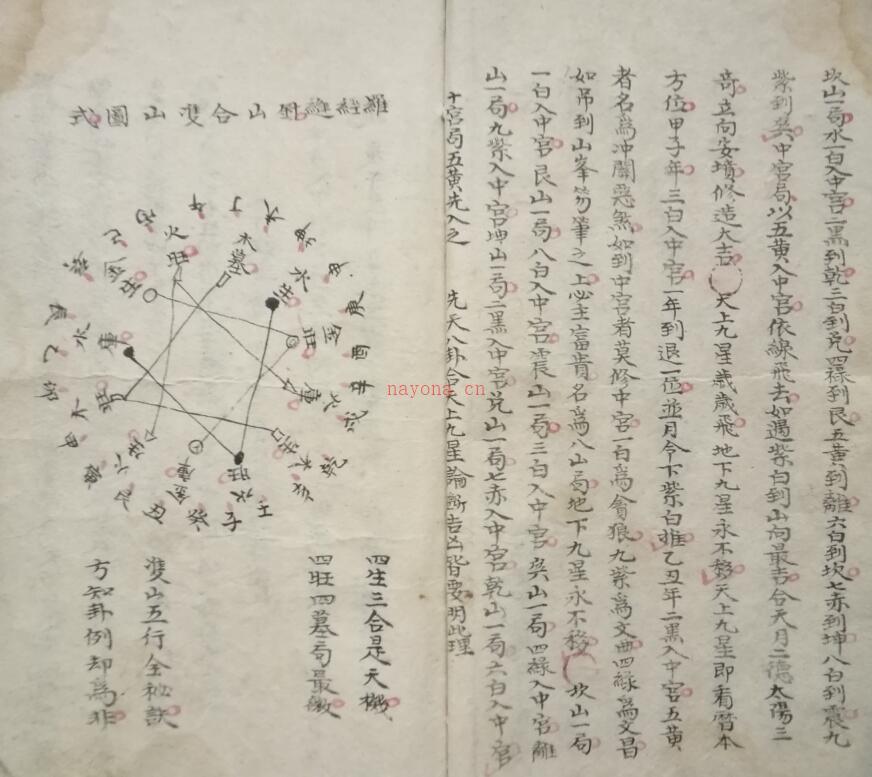 坎山一局水一白入中宮二黑到乾三白到兌四祿到艮五黃到離六白到坎七赤到坤八白到震九
紫到巽中宮局以五黃入中宮依線飛去如遇紫白到山向最吉合天月二德太陽三
奇立向安墳修造大吉 天上九星歲歲飛地下九星永不移天上九星即看曆本
方位甲子年三白入中宮一年到退一位並月令下紫白推乙丑年二黑入中宮五黃
者名為沖關惡煞如到中宮者莫修中宮一白為貪狼九紫為文曲四綠為文昌
如吊到山峯筯筆之上必主富貴名為八山局地下九星永不移 坎山一局
一白入中宮艮山一局八白入中宮震山一局三白入中宮巽山一局四祿入中宮離
山一局九紫入中宮坤山一局二黑入中宮兌山一局七赤入中宮乾山一局六白入中宮
十宮局五黃先入之 先天八卦合天上九星論斷吉凶皆要明此理
羅經縫針山合雙山圖式
午
丁
未
坤
申
庚
酉
辛
戌
乾
亥
壬
子
癸
丑
艮
寅
甲
卯
乙
辰
巽
巳
火旺
木墓
水生
金旺
水旺
四生三合是天機
四旺四墓局最微
雙山五行全秘訣
方知卦例却為非
nayona.cn